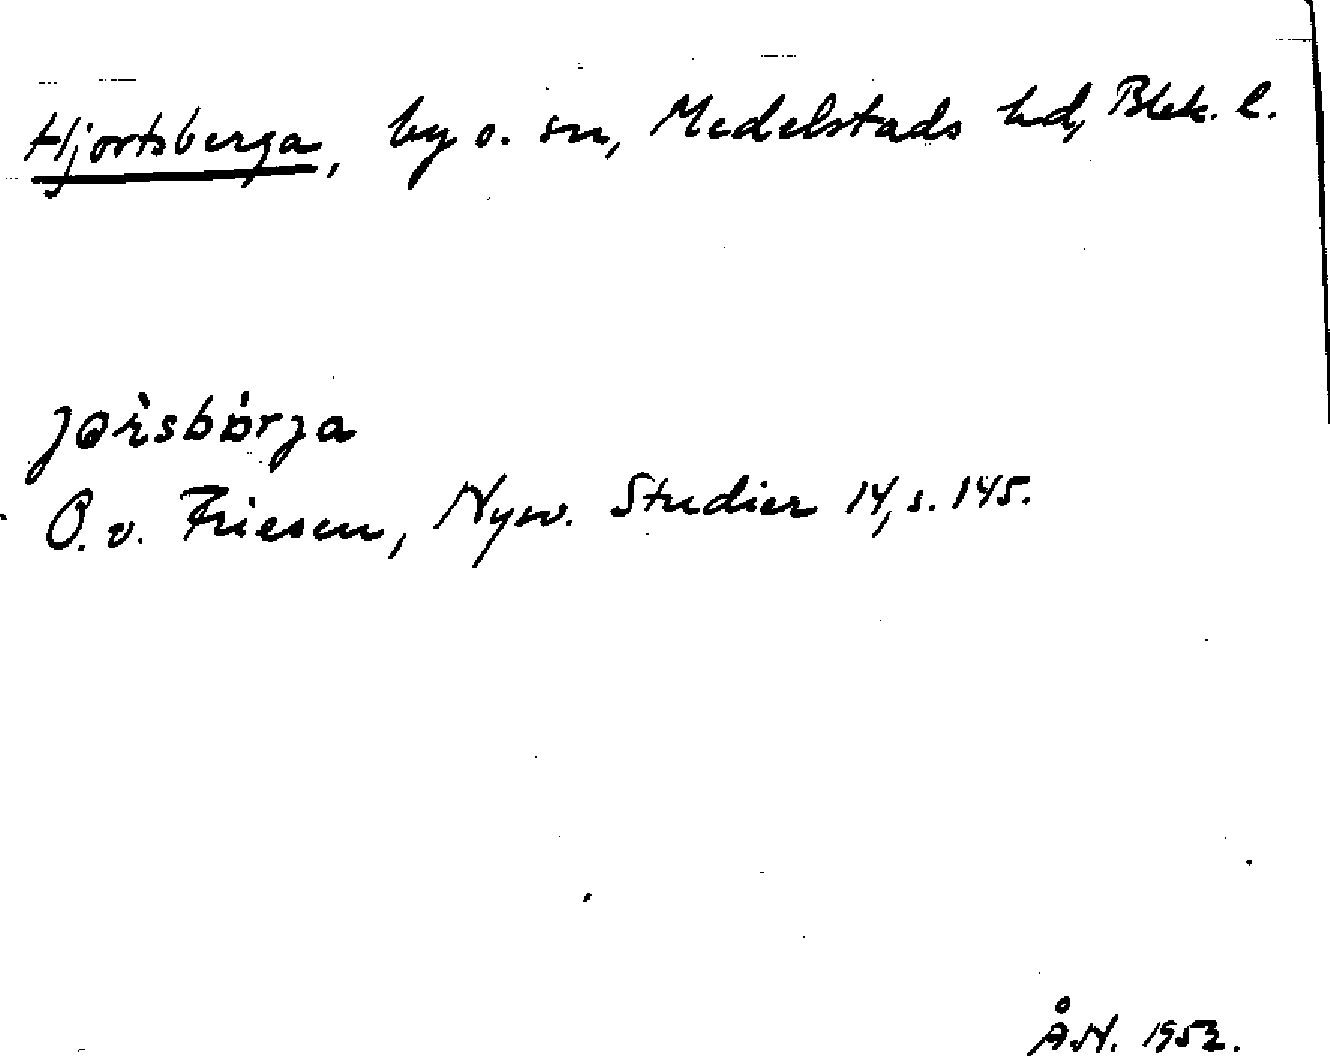 Hjortsberga, by o. sn, Medelstads hd, Blek. l.
O. v. Friesen, Nysv. Studier 14, s. 145.
Å.N. 1952.